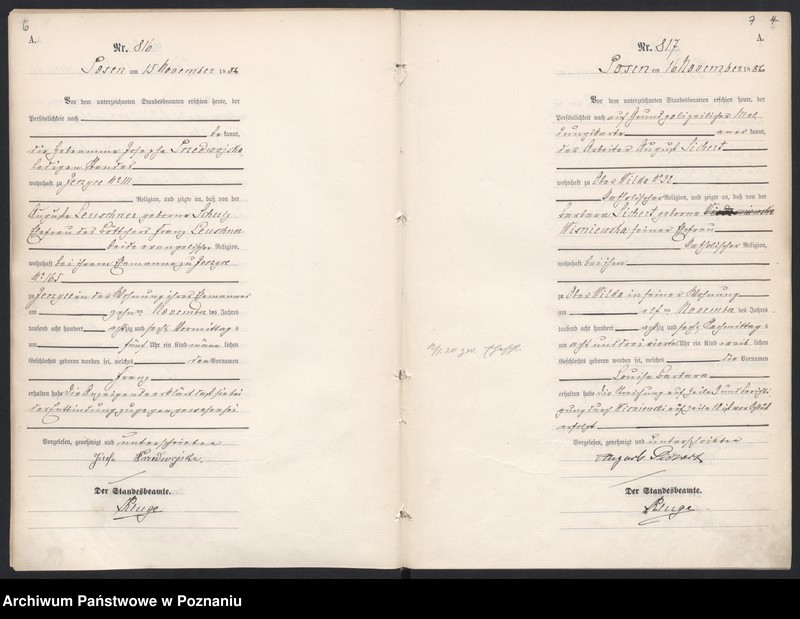 6
A.
Nr. 816
Posen am 15 November 1886
Vor dem unterzeichneten Standesbeamten erschien heute, der
Persönlichkeit nach
bekannt,
die Hebeamme Josepha
ledigen Standes
wohnhaft zu Jerzyce No 111
Religion, und zeigte an, daß von der
Auguste Leuschner geborne Schulz
Ehefrau des Böttchers Franz Leuschner
beide evangelischer Religion,
wohnhaft bei ihrem Ehemanne zu Jerzyce
No 165
zu Jerzyce in der Wohnung ihres Ehemannes
am zehnten November des Jahres
tausend acht hundert achtzig und sechs Vormittags
um fünf Uhr ein Kind männlichen
Geschlechts geboren worden sei, welches den Vornamen
Franz
erhalten habe die Anzeigende erklärt daß sie bei
der Entbindung zugegen gewesen sei
Vorgelesen, genehmigt und unterschrieben
Der Standesbeamte.
Kluge
7 4
A.
Nr. 817
Posen am 16 November 1886
Vor dem unterzeichneten Standesbeamten erschien heute, der
Persönlichkeit nach auf Grund polizeilicher Mel-
dungskarte anerkannt,
der Arbeiter August Sichert
wohnhaft zu Ober Wilda No 32
katholischer Religion, und zeigte an, daß von der
Barbara Sichert geborne
Wisniewska seiner Ehefrau
katholischer Religion,
wohnhaft bei ihm
zu Ober Wilda in seiner Wohnung
am elften November des Jahres
tausend acht hundert achtzig und sechs Nachmittags
um acht und drei viertel Uhr ein Kind weiblichen
Geschlechts geboren worden sei, welches die Vornamen
Louise Barbara
erhalten habe die Streichung auf Zeile und Berichti-
gung durch Wisniewski auf Zeile 10 ist vor Schluß
erfolgt
Vorgelesen, genehmigt und unterschrieben
August Sichert
Der Standesbeamte.
Kluge
Archiwum Państwowe w Poznaniu